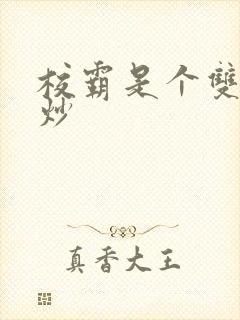 校霸是个双
炒
真香大王